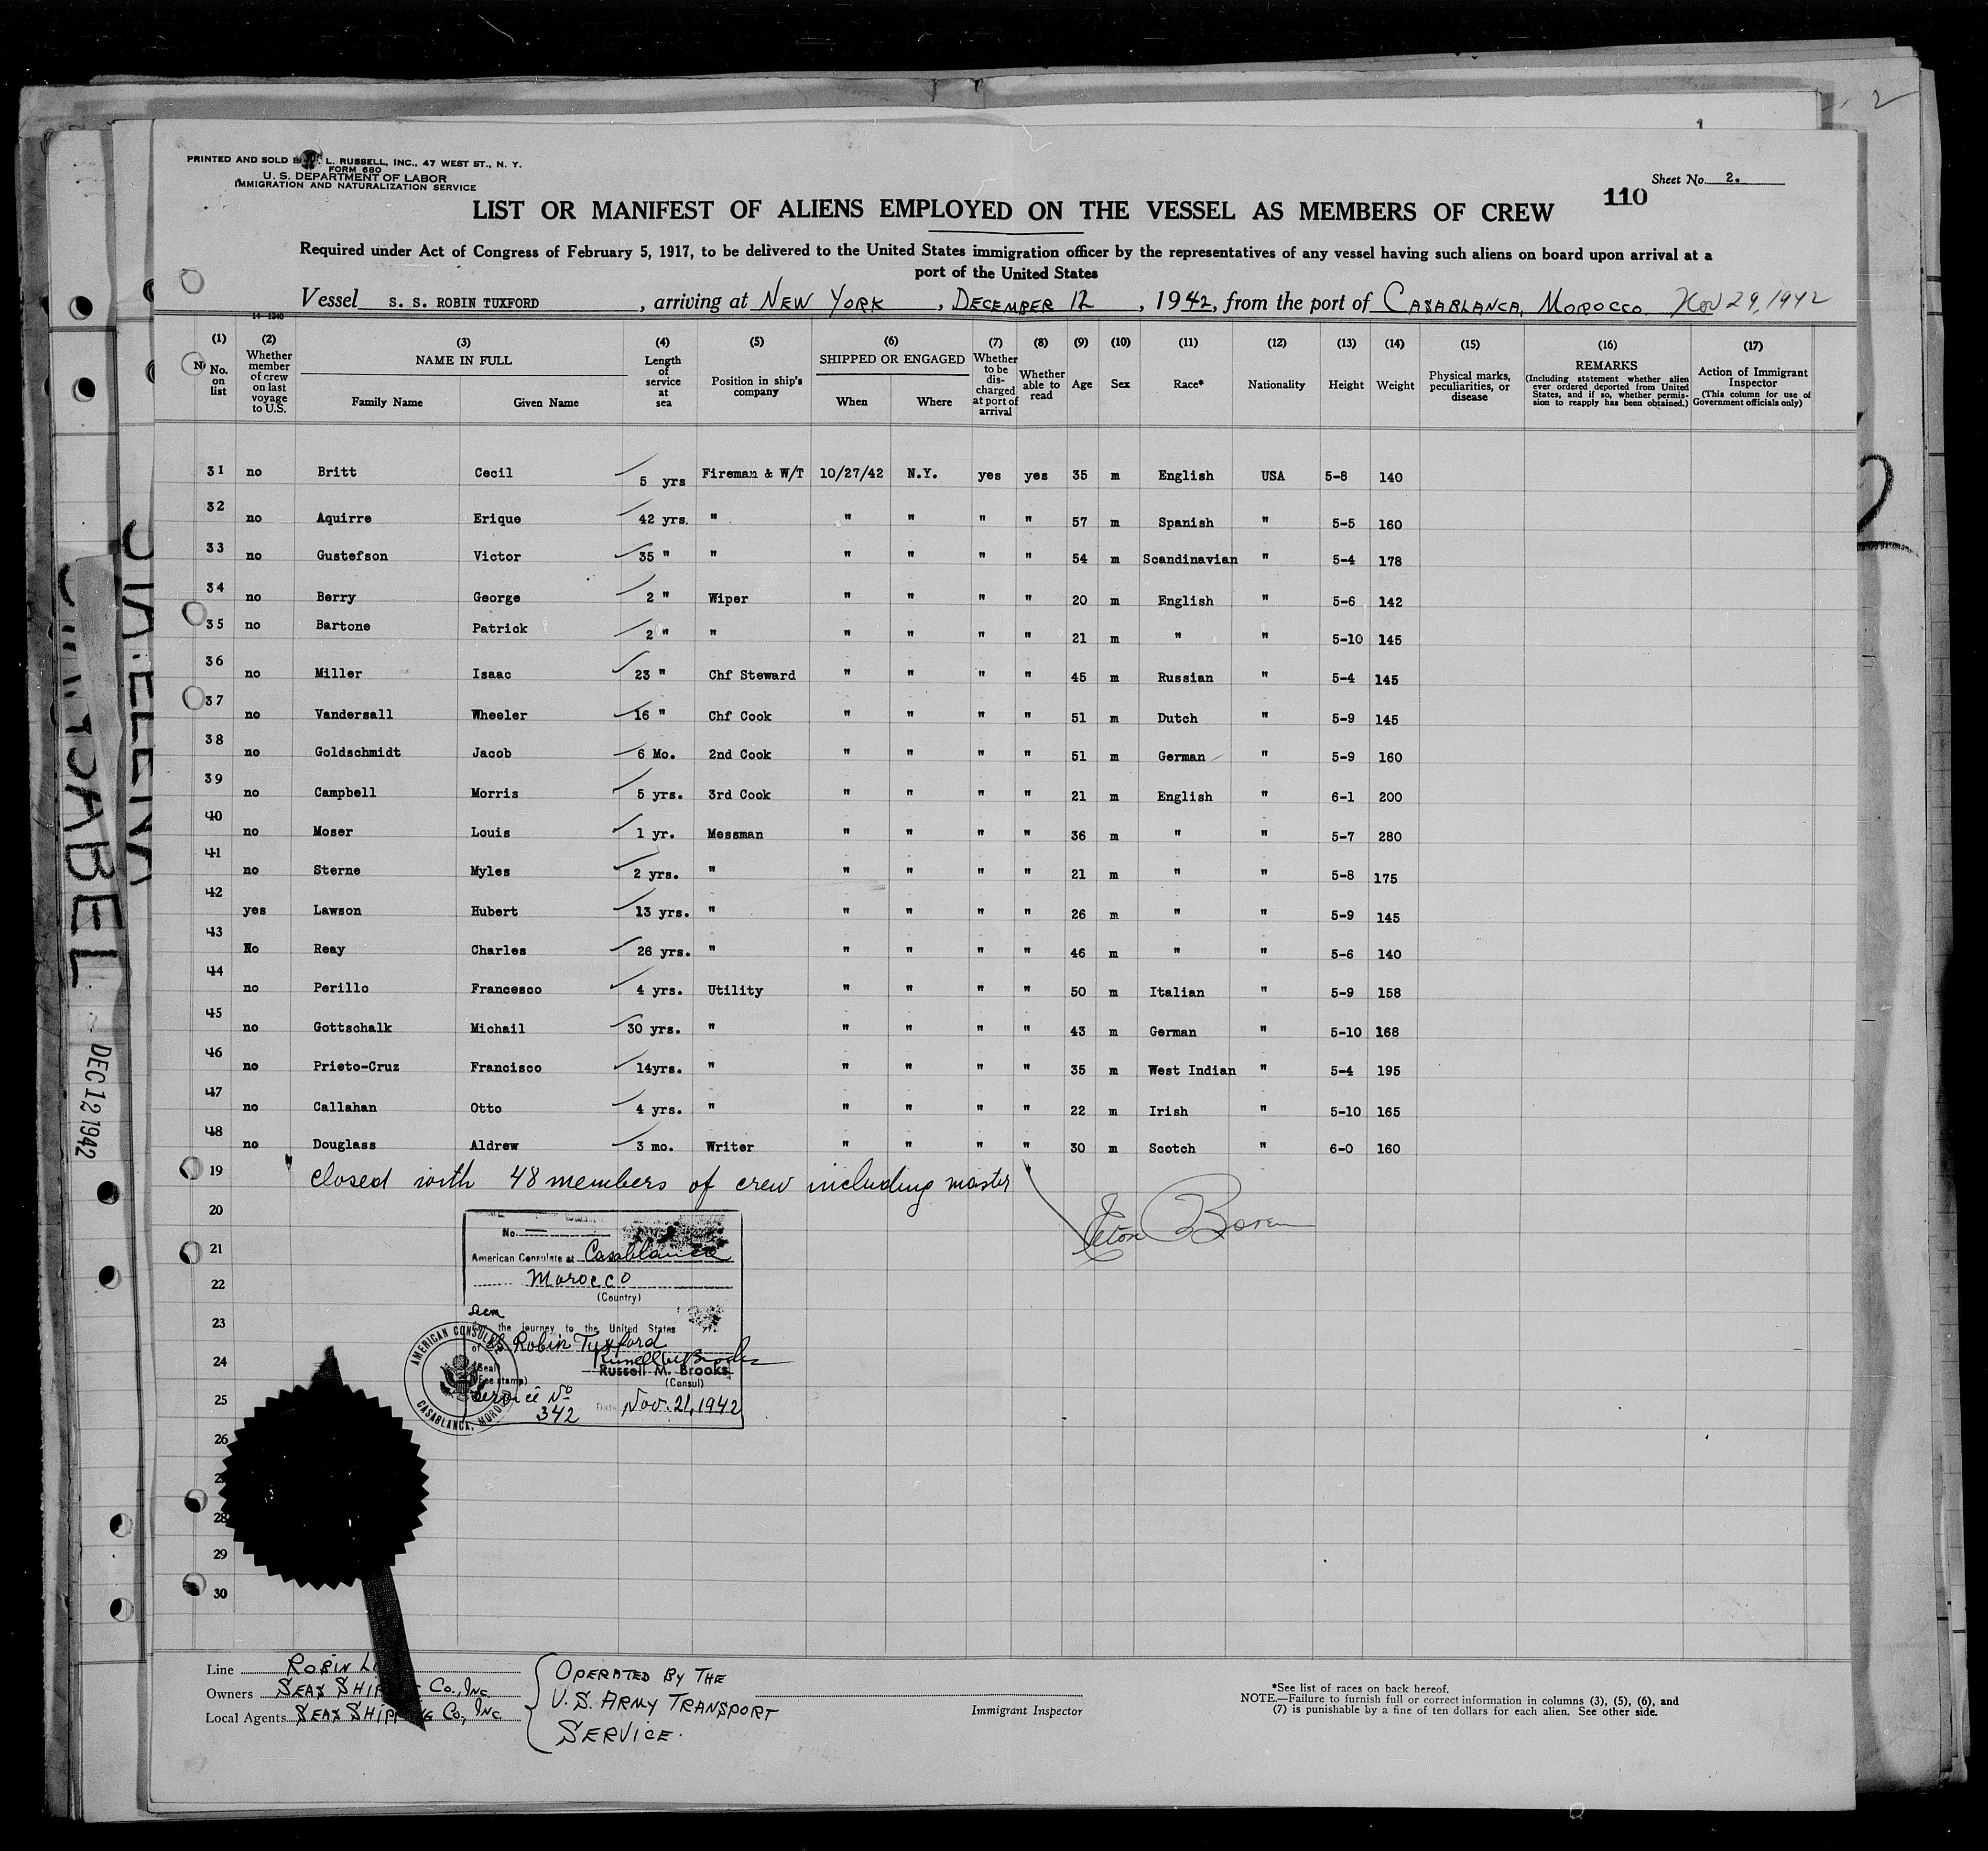 2
PRINTED AND SOLD L. RUSSELL, INC., 47 WEST ST., N. Y.
FORM 680
U. S. DEPARTMENT OF LABOR
IMMIGRATION AND NATURALIZATION SERVICE
Sheet No. 2.
110
LIST OR MANIFEST OF ALIENS EMPLOYED ON THE VESSEL AS MEMBERS OF CREW
Required under Act of Congress of February 5, 1917, to be delivered to the United States immigration officer by the representatives of any vessel having such aliens on board upon arrival at a
port of the United States
Vessel S. S. ROBIN TUXFORD, arriving at NEW YORK, DECEMBER 12, 1942, from the port of CASABLANCA, MOROCCO. Nov 29, 1942
14—1240
(1) No. on list (2) Whether member of crew on last voyage to U.S. (3) NAME IN FULL Family Name Given Name (4) Length of service at sea (5) Position in ship's company (6) SHIPPED OR ENGAGED When Where (7) Whether to be discharged at port of arrival (8) Whether able to read (9) Age (10) Sex (11) Race* (12) Nationality (13) Height (14) Weight (15) Physical marks, peculiarities, or disease (16) REMARKS (Including statement whether alien ever ordered deported from United States, and if so, whether permission to reapply has been obtained.) (17) Action of Immigrant Inspector (This column for use of Government officials only)
31 no Britt Cecil 5 yrs Fireman & W/T 10/27/42 N.Y. yes yes 35 m English USA 5-8 140
32 no Aquirre Erique 42 yrs. " " " " " 57 m Spanish " 5-5 160
33 no Gustefson Victor 35 " " " " " " 54 m Scandinavian " 5-4 178
34 no Berry George 2 " Wiper " " " " 20 m English " 5-6 142
35 no Bartone Patrick 2 " " " " " " 21 m " " 5-10 145
36 no Miller Isaac 23 " Chf Steward " " " " 45 m Russian " 5-4 145
37 no Vandersall Wheeler 16 " Chf Cook " " " " 51 m Dutch " 5-9 145
38 no Goldschmidt Jacob 6 Mo. 2nd Cook " " " " 51 m German " 5-9 160
39 no Campbell Morris 5 yrs. 3rd Cook " " " " 21 m English " 6-1 200
40 no Moser Louis 1 yr. Messman " " " " 36 m " " 5-7 280
41 no Sterne Myles 2 yrs. " " " " " 21 m " " 5-8 175
42 yes Lawson Hubert 13 yrs. " " " " " 26 m " " 5-9 145
43 No Reay Charles 26 yrs. " " " " " 46 m " " 5-6 140
44 no Perillo Francesco 4 yrs. Utility " " " " 50 m Italian " 5-9 158
45 no Gottschalk Michail 30 yrs. " " " " " 43 m German " 5-10 168
46 no Prieto-Cruz Francisco 14yrs. " " " " " 35 m West Indian " 5-4 195
47 no Callahan Otto 4 yrs. " " " " " 22 m Irish " 5-10 165
48 no Douglass Aldrew 3 mo. Writer " " " " 30 m Scotch " 6-0 160
19 closed with 48 members of crew including master
20
21
22
23
24
25
26
28
29
30
No.
American Consulate at Casablanca
Morocco
(Country)
Seen
the journey to the United States
of SS Robin Tuxford
Russell M. Brooks
(Consul)
(Seal)
(Fee stamp)
Service No
342 Date Nov. 21, 1942
AMERICAN CONSULATE
CASABLANCA, MOROCCO
Line ROBIN
Owners SEAS SHIPPING CO., INC
Local Agents SEAS SHIPPING CO., INC
OPERATED BY THE
U. S. ARMY TRANSPORT
SERVICE.
Immigrant Inspector
*See list of races on back hereof.
NOTE.—Failure to furnish full or correct information in columns (3), (5), (6), and
(7) is punishable by a fine of ten dollars for each alien. See other side.
DEC 12 1942
2